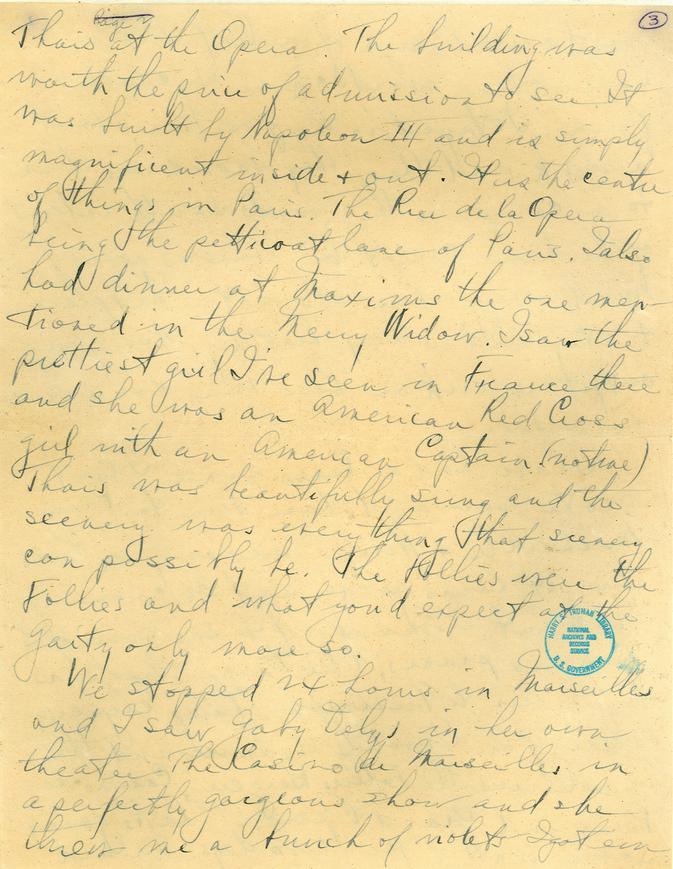 Page 2
3
Thais at the Opera. The building was
worth the price of admission to see. It
was built by Napoleon III and is simply
magnificent inside + out. It is the centre
of things in Paris. The Rue de la Opera
being the petticoat lane of Paris. I also
had dinner at Maxims the one men-
tioned in the Merry Widow. I saw the
prettiest girl I've seen in France there
and she was an American Red Cross
girl with an American Captain (not me)
Thais was beautifully sung and the
scenery was everything that scenery
can possibly be. The Follies were the
Follies and what you'd expect at the
Gaity only more so.
HARRY S. TRUMAN LIBRARY
NATIONAL
ARCHIVES AND
RECORDS
SERVICE
U. S. GOVERNMENT
We stopped 24 hours in Marseilles
and I saw Gaby Delys in her own
theater The Casino de Marseilles in
a perfectly gorgeous show and she
threw me a bunch of violets I got em